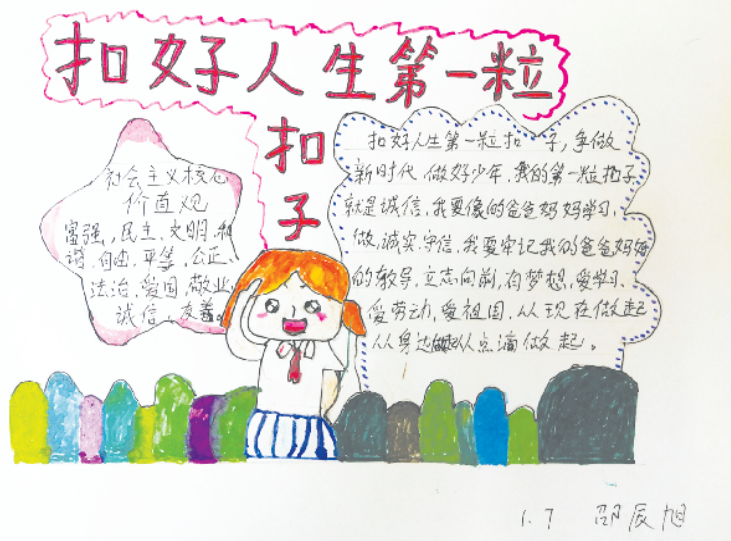 扣好人生第一粒
扣
子
社会主义核心
价直观
富强,民主,文明,和
谐,自由,平等,公正、
法治,爱国,敬业,
诚信,友善。
扣好人生第一粒扣子,争做
新时代做好少年,我的第一粒扣子
就是诚信,我要像的爸爸妈妈学习,
做,诚实守信,我要牢记我的爸爸妈妈
的教导,立志向前,有梦想,爱学习、
爱劳动,爱祖国,从现在做起
从身边做起从点滴做起。
1.7 邵辰旭